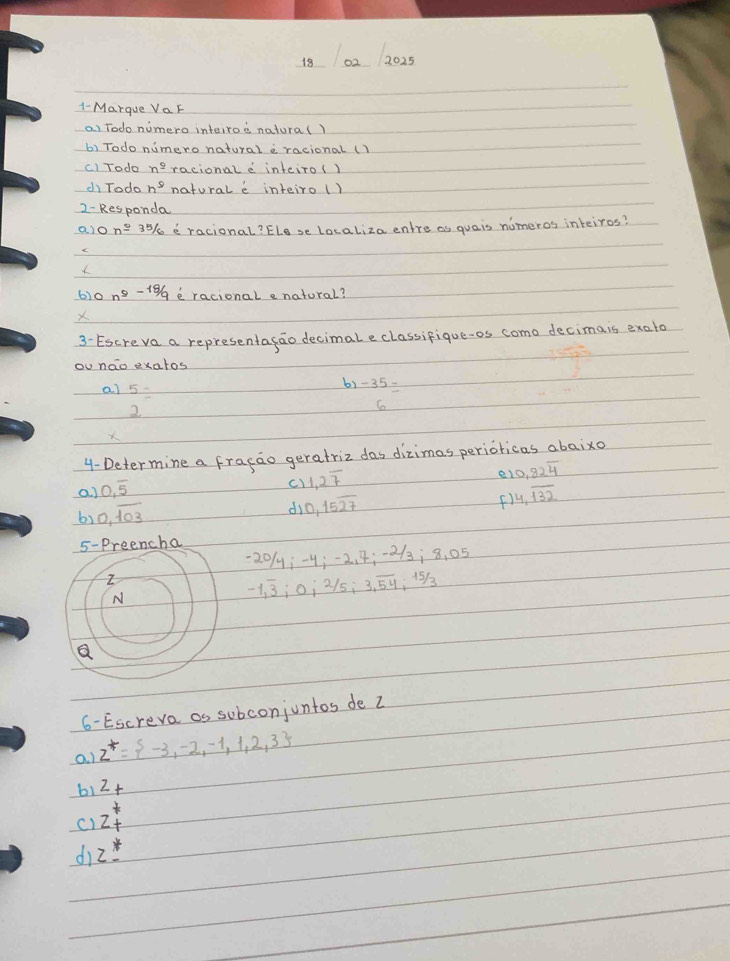 18/02/2025
1-Marque V a F
a) Todo número inteiro é natura( )
b) Todo número natural é racional ( )
c) Todo nº racional é inteiro ( )
d) Todo nº natural é inteiro ( )
2-Responda
a) O nº 35/6 é racional? Ele se localiza entre os quais números inteiros?
b) O nº -18/9 é racional e natural?
x
3-Escreva a representação decimal e classifique-os como decimais exato
ou não exatos
a) 5/2 =
b) -35/6 =
x
4-Determine a fração geratriz das dízimas perióticas abaixo
a) 0,5̅ c) 1,27̅ e) 0,824̅
b) 0,1̅0̅3̅ d) 0,152̅7̅ f) 4,1̅3̅2̅
5-Preencha
-20/4; -4; -2,7̅; -2/3; 8,05
-1,3̅; 0; 2/5; 3,5̅4̅; 15/3
Z
N
Q
6-Escreva os subconjuntos de Z
a) Z* = {-3, -2, -1, 1, 2, 3}
b) Z+
c) Z*+
d) Z*-